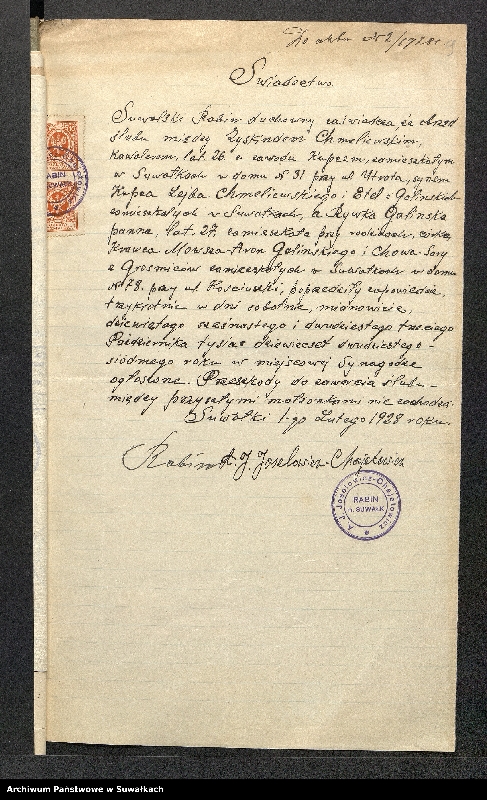 Do aktu № 2/1928 r
Świadectwo.
Suwalski Rabin duchowny zaświadcza, że obrzęd
ślubu między Zyskindem Chmeliewskim,
kawalerem, lat 26. z zawodu kupcem, zamieszkałym
w Suwałkach w domu № 31 przy ul. Utrata, synem
kupca Lejba Chmeliewskiego i Etel z Galińskich
zamieszkałych w Suwałkach, a Rywką Galinską
panną, lat 27, zamieszkałą przy rodzicach, córką
krawca Mowsza-Aron Galińskiego i Chowa-Sory
z zamieszkałych w Suwałkach w domu
№ 78. przy ul. Kościuszki, poprzedziły zapowiedzie,
trzykrotnie w dni sobotnie, mianowicie,
dziewiątego szesnastego i dwudziestego trzeciego
Października tysiąc dziewięćset dwudziestego-
siódmego roku w miejscowej Synagodze
ogłoszone. Przeszkody do zawarcia ślubu-
między przyszłymi małżonkami nie zachodzi.
Suwałki 1-go Lutego 1928 roku.
Rabin A. J. Joselewicz-Chajełowicz
A. J. Joselowicz-Chajetowicz
RABIN
m. SUWAŁK
RABIN
SUWAŁK
Archiwum Państwowe w Suwałkach